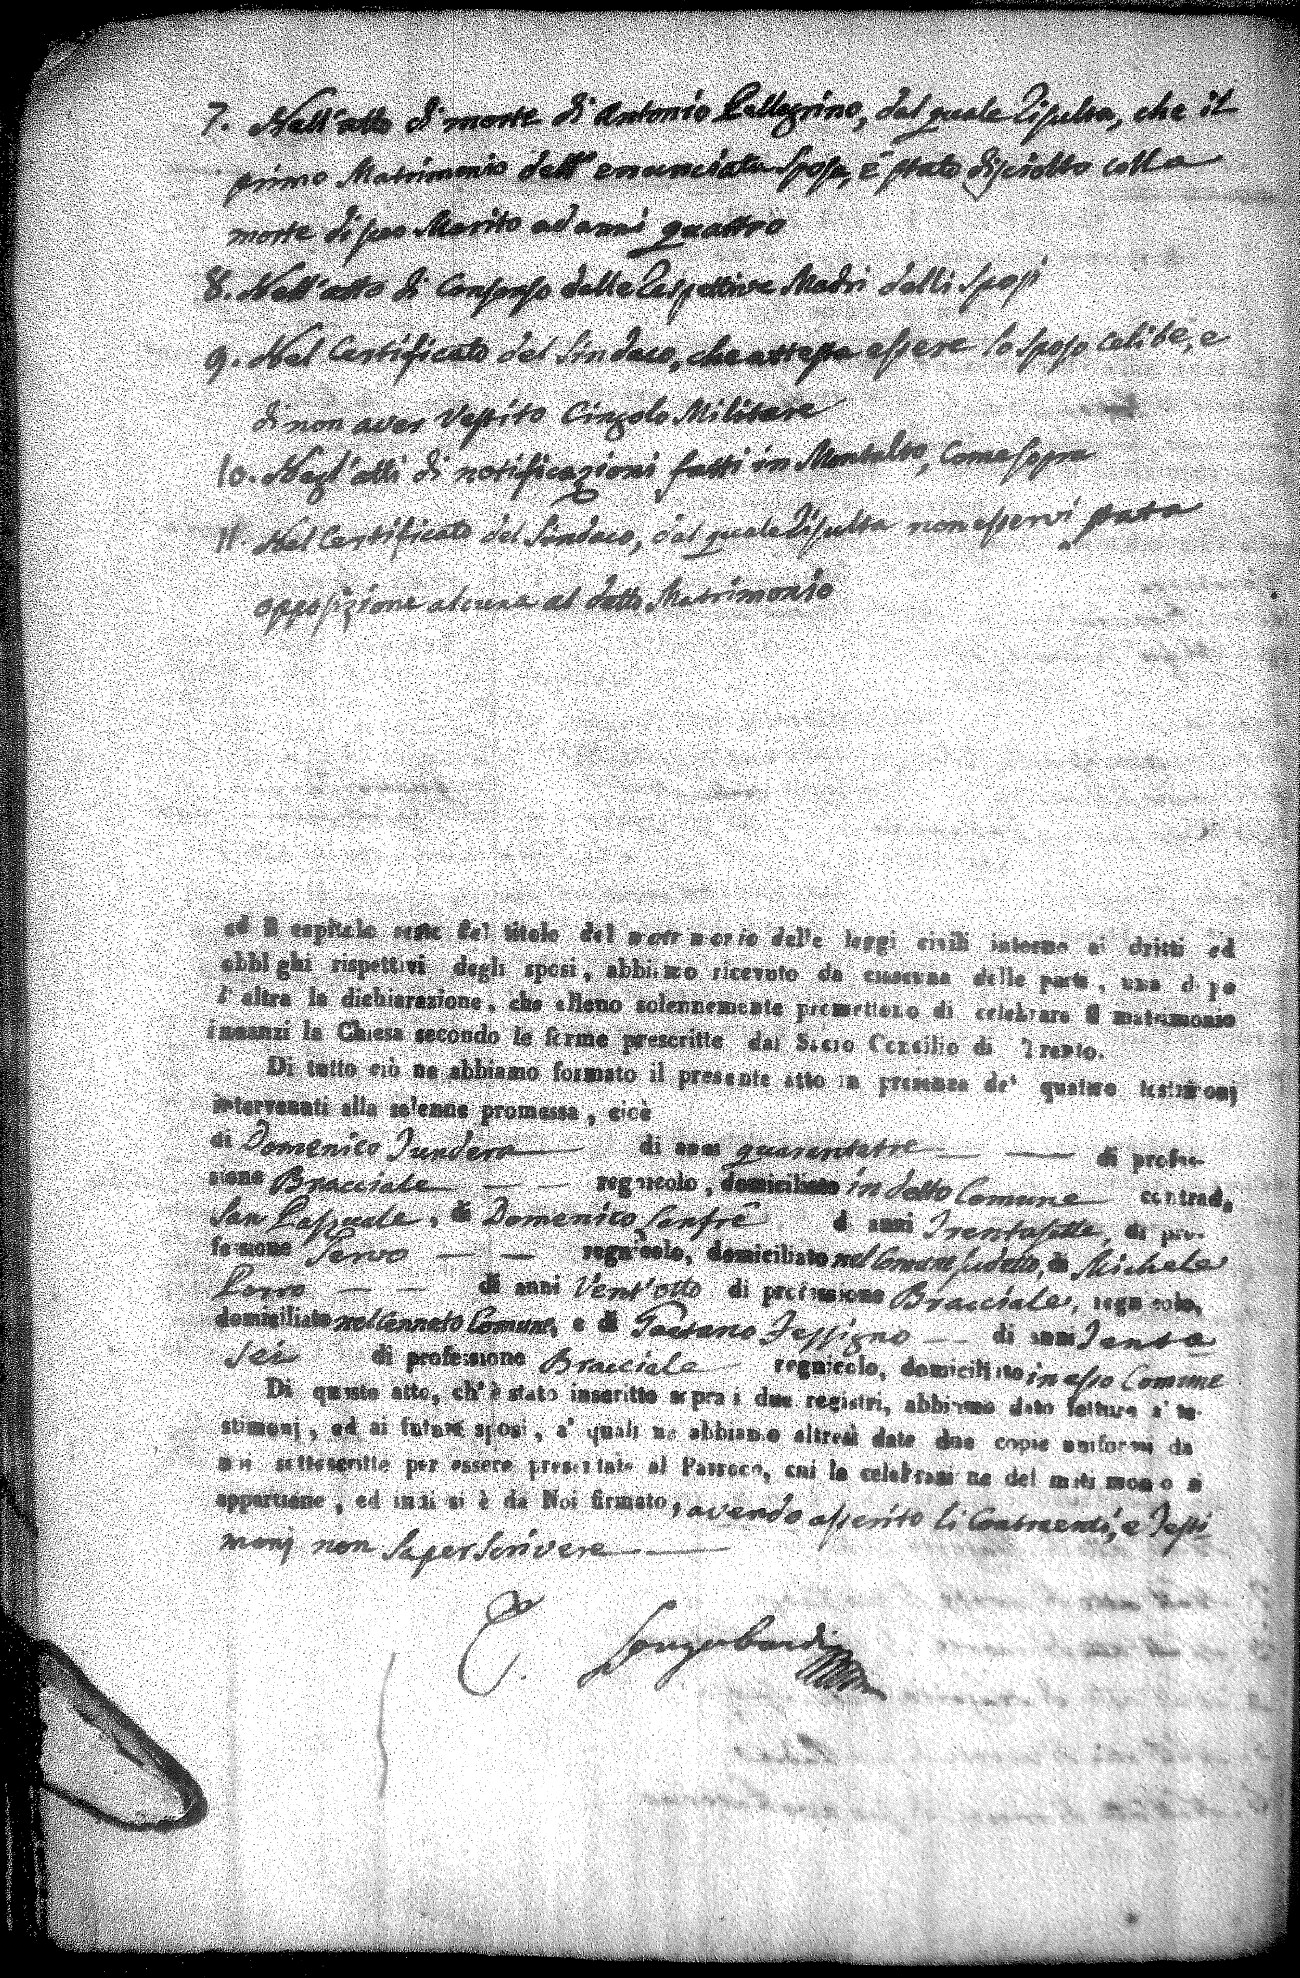 7. Nell'atto di morte di Antonio Pellegrino, dal quale Risulta, che il
primo Matrimonio dell'enunciata Sposa, è stato disciolto colla
morte di suo Marito ad anni quattro
8. Nell'atto di Consenso delle Respettive Madri delli Sposi
9. Nel Certificato del Sindaco, che attesta essere lo Sposo Celibe, e
di non aver Vestito Cingolo Militare
10. Negl'atti di notificazioni fatti in Montalto, Come sopra
11. Nel Certificato del Sindaco, dal quale Risulta non esservi stata
opposizione alcuna al detto Matrimonio
ed il capitolo sesto del titolo del matrimonio delle leggi civili intorno ai dritti ed
obblighi rispettivi degli sposi, abbiamo ricevuto da ciascuna delle parti, una dopo
l'altra la dichiarazione, che elleno solennemente promettono di celebrare il matrimonio
innanzi la Chiesa secondo le forme prescritte dal Sacro Concilio di Trento.
Di tutto ciò ne abbiamo formato il presente atto in presenza de' quattro testimonj
intervenuti alla solenne promessa, cioè
di Domenico di anni quarantatre di profes-
sione Bracciale regnicolo, domiciliato in detto Comune contrada
San Pasquale, di Domenico Sanfrè di anni Trentasette, di pro-
fessione Servo regnicolo, domiciliato nel Comune sudetto, di Michele
di anni Vent'otto di professione Bracciale, regnicolo,
domiciliato nell'enneto Comune, e di Gaetano Tessigno di anni Tenta
Sei di professione Bracciale regnicolo, domiciliato in esso Comune
Di questo atto, ch'è stato inscritto sopra i due registri, abbiamo dato lettura a' te-
stimonj, ed ai futuri sposi, a' quali ne abbiamo altresì date due copie uniformi da
noi sottoscritte per essere presentate al Parroco, cui la celebrazione del matrimonio si
appartiene, ed indi si è da Noi firmato, avendo asserito li Contraenti, e Testi
monj non saper Scrivere
Longobardi